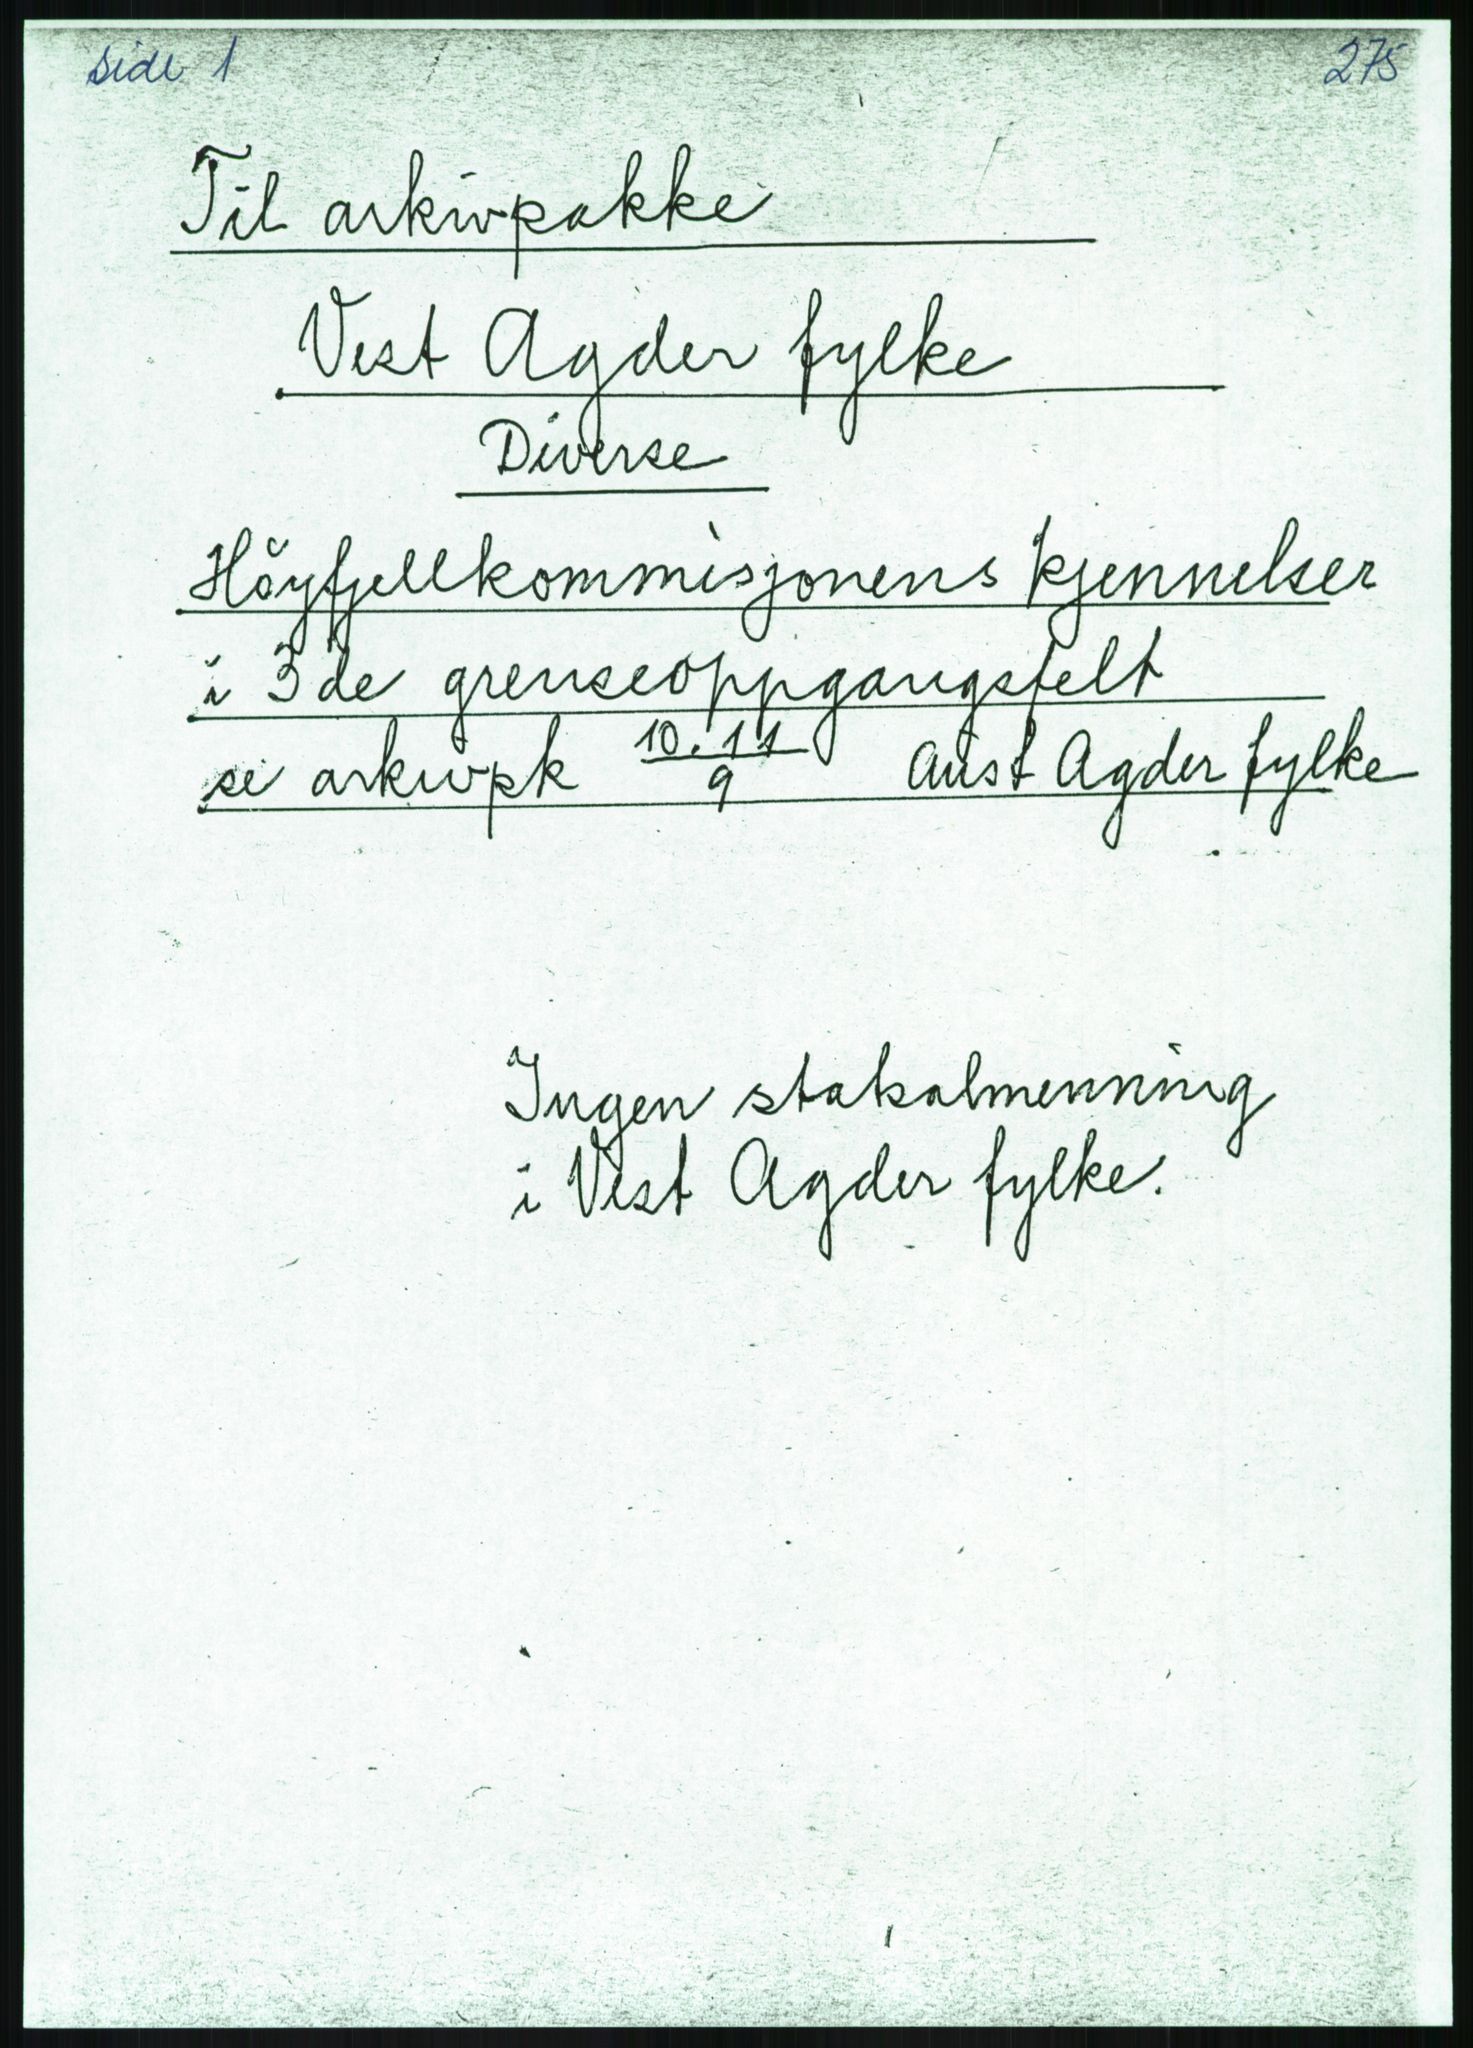 side 1 275
Til arkivpakke
Vest Agder fylke
Diverse
Höyfjellkommisjonens kjennelser
i 3de grenseoppgangsfelt
se arkivpk 10.11/9 Aust Agder fylke
Ingen statsalmenning
i Vest Agder fylke.